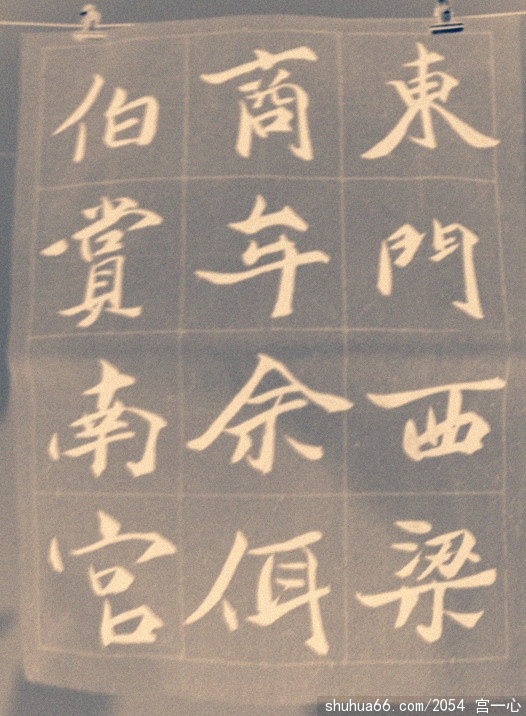 東門西梁
商牟佘佴
伯賞南宮
shuhua66.com/2054 宫一心